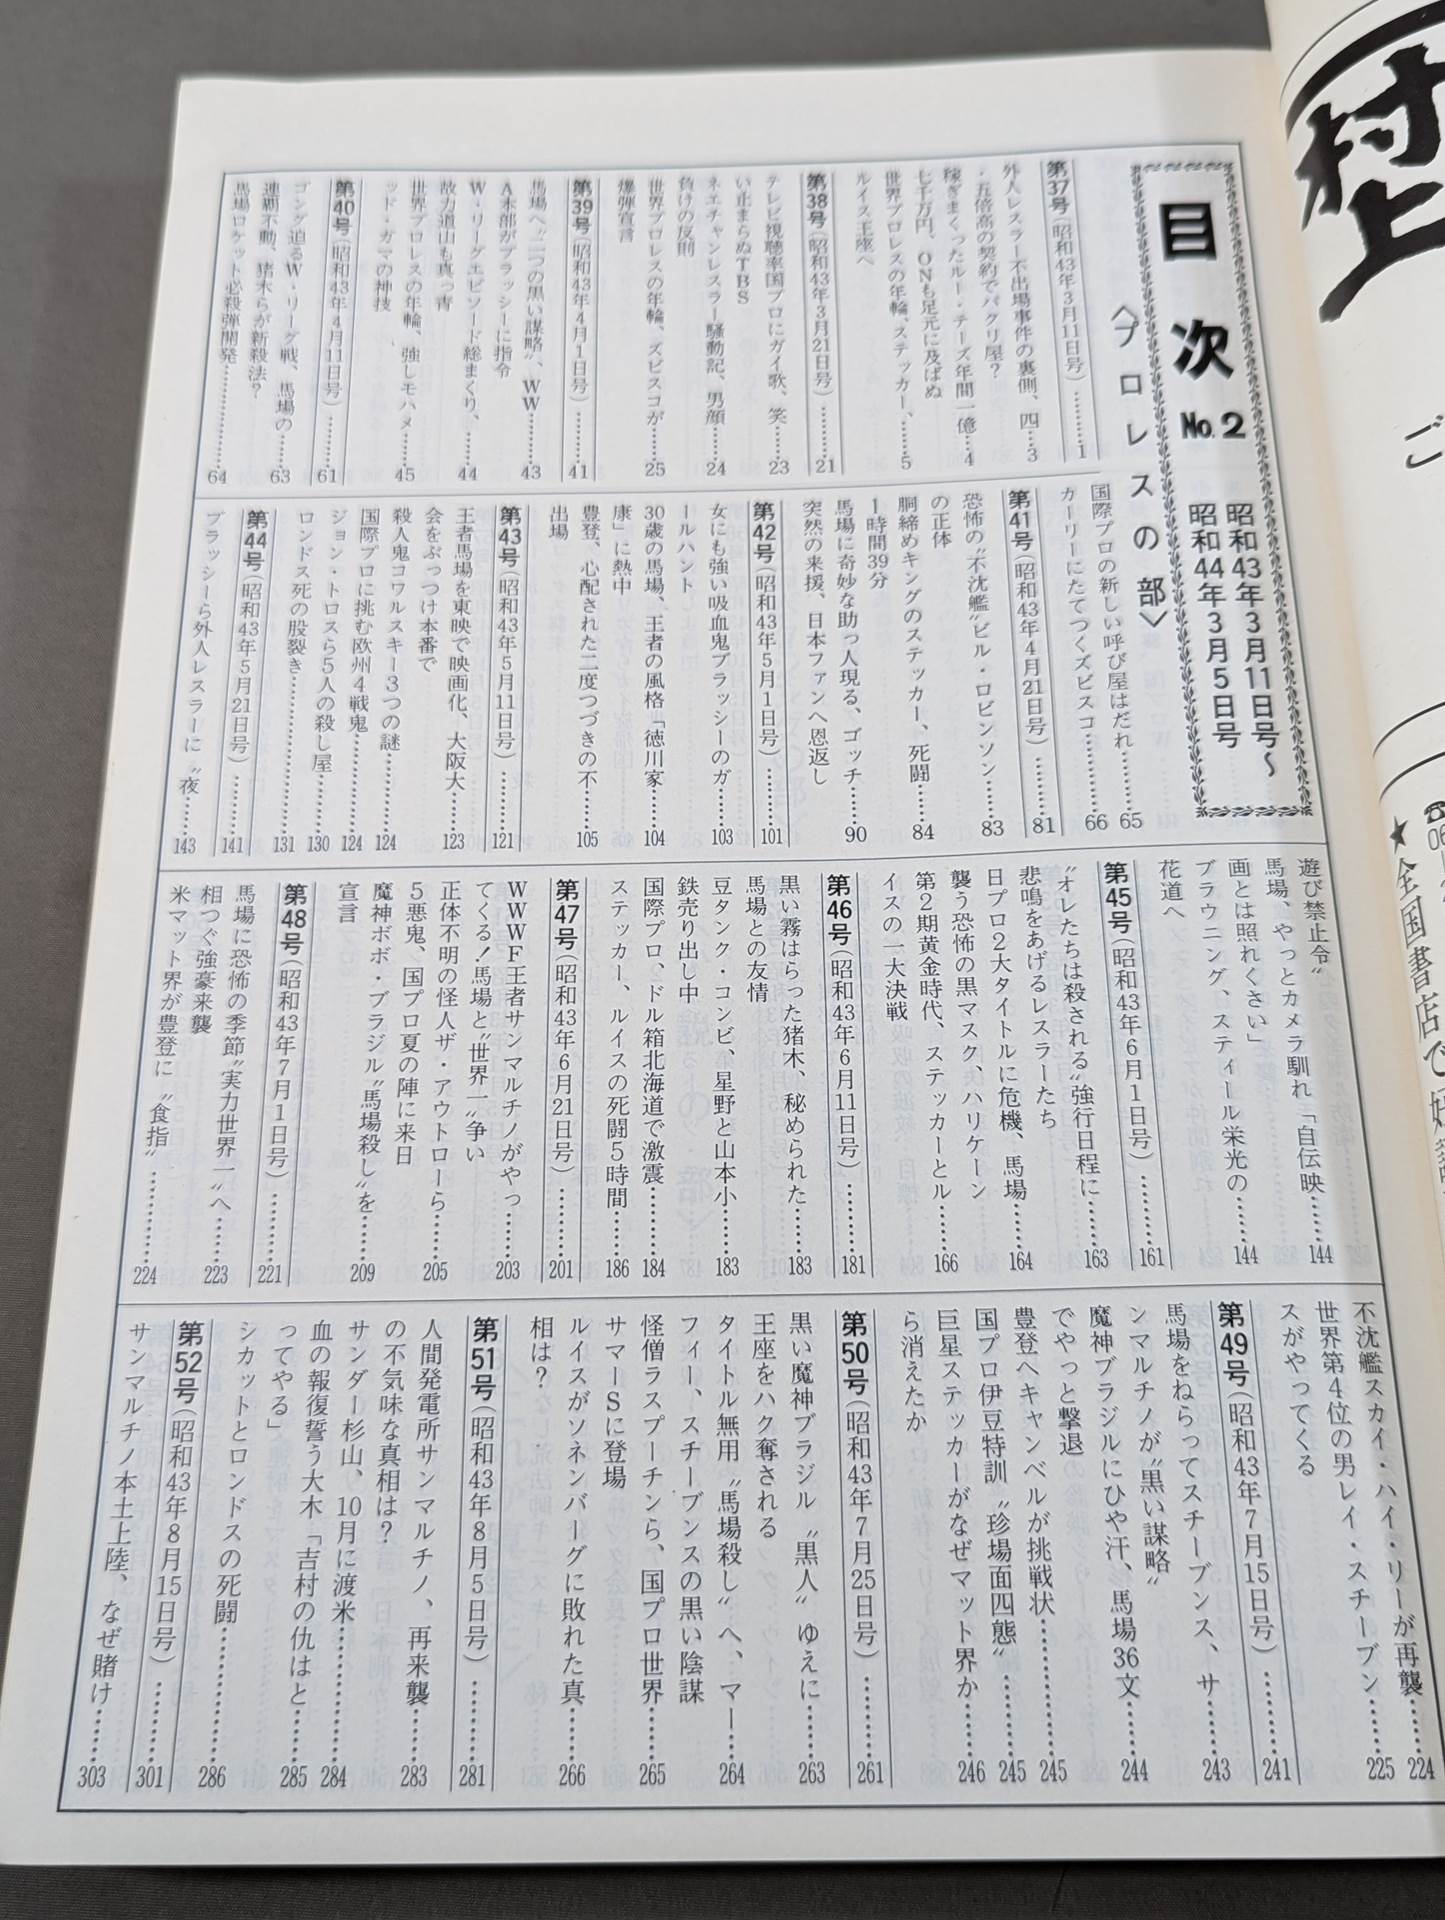 目次 No.2
昭和43年3月11日号〜
昭和44年3月5日号
〈プロレスの部〉
第37号(昭和43年3月11日号)………1
外人レスラー不出場事件の裏側、四…3
・五倍高の契約でパクリ屋?
稼ぎまくったルー・テーズ年間一億…4
七千万円、ONも足元に及ばぬ
世界プロレスの年輪、ステッカー、……5
ルイス王座へ
第38号(昭和43年3月21日号)………21
テレビ視聴率国プロにガイ歌、笑……23
い止まらぬTBS
ネエチャンレスラー騒動記、男顔……24
負けの反則
世界プロレスの年輪、ズビスコが……25
爆弾宣言
第39号(昭和43年4月1日号)………41
馬場へ〝二つの黒い謀略〟、WW……43
A本部がブラッシーに指令
W・リーグエピソード総まくり、……44
故力道山も真っ青
世界プロレスの年輪、強しモハメ……45
ッド・ガマの神技
第40号(昭和43年4月11日号)………61
ゴング迫るW・リーグ戦、馬場の……63
連覇不動、猪木らが新殺法?
馬場ロケット必殺弾開発……………64
国際プロの新しい呼び屋はだれ………65
カーリーにたてつくズビスコ…………66
第41号(昭和43年4月21日号)………81
恐怖の〝不沈艦〟ビル・ロビンソン……83
の正体
胴締めキングのステッカー、死闘……84
1時間39分
馬場に奇妙な助っ人現る、ゴッチ……90
突然の来援、日本ファンへ恩返し
第42号(昭和43年5月1日号)………101
女にも強い吸血鬼ブラッシーのガ……103
ールハント
30歳の馬場、王者の風格「徳川家……104
康」に熱中
豊登、心配された二度つづきの不……105
出場
第43号(昭和43年5月11日号)………121
王者馬場を東映で映画化、大阪大……123
会をぶっつけ本番で
殺人鬼コワルスキー3つの謎…………124
国際プロに挑む欧州4戦鬼……………124
ジョン・トロスら5人の殺し屋………130
ロンドス死の股裂き……………………131
第44号(昭和43年5月21日号)………141
ブラッシーら外人レスラーに〝夜……143
遊び禁止令〟
馬場、やっとカメラ馴れ「自伝映……144
画とは照れくさい」
ブラウニング、スティール栄光の……144
花道へ
第45号(昭和43年6月1日号)………161
〝オレたちは殺される〟強行日程に……163
悲鳴をあげるレスラーたち
日プロ2大タイトルに危機、馬場……164
襲う恐怖の黒マスク、ハリケーン
第2期黄金時代、ステッカーとル……166
イスの一大決戦
第46号(昭和43年6月11日号)………181
黒い霧はらった猪木、秘められた……183
馬場との友情
豆タンク・コンビ、星野と山本小……183
鉄売り出し中
国際プロ、ドル箱北海道で激震………184
ステッカー、ルイスの死闘5時間……186
第47号(昭和43年6月21日号)………201
WWWF王者サンマルチノがやっ……203
てくる!馬場と〝世界一〟争い
正体不明の怪人ザ・アウトローら……205
5悪鬼、国プロ夏の陣に来日
魔神ボボ・ブラジル〝馬場殺し〟を……209
宣言
第48号(昭和43年7月1日号)………221
馬場に恐怖の季節〝実力世界一〟へ……223
相つぐ強豪来襲
米マット界が豊登に〝食指〟…………224
不沈艦スカイ・ハイ・リーが再襲……224
世界第4位の男レイ・スチーブン……225
スがやってくる
第49号(昭和43年7月15日号)………241
馬場をねらってスチーブンス、サ……243
ンマルチノが〝黒い謀略〟
魔神ブラジルにひや汗、馬場36文……244
でやっと撃退
豊登へキャンベルが挑戦状……………245
国プロ伊豆特訓〝珍場面四態〟………245
巨星ステッカーがなぜマット界か……246
ら消えたか
第50号(昭和43年7月25日号)………261
黒い魔神ブラジル〝黒人〟ゆえに……263
王座をハク奪される
タイトル無用〝馬場殺し〟へ、マー……264
フィー、スチーブンスの黒い陰謀
怪僧ラスプーチンら、国プロ世界……265
サマーSに登場
ルイスがソネンバーグに敗れた真……266
相は?
第51号(昭和43年8月5日号)………281
人間発電所サンマルチノ、再来襲……283
の不気味な真相は?
サンダー杉山、10月に渡米……………284
血の報復誓う大木「吉村の仇はと……285
ってやる」
シカットとロンドスの死闘……………286
第52号(昭和43年8月15日号)………301
サンマルチノ本土上陸、なぜ賭け……303
村上
ご
★全国書店で